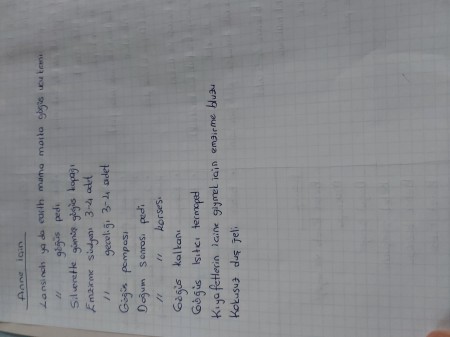 Anne için
Lansinoh ya da multi mama marka göğüs ucu kremi
" göğüs pedi
Silverette gümüş göğüs kapağı
Emzirme sütyeni 3-4 adet
" geceliği 3-4 adet
Göğüs pompası
Doğum sonrası pedi
" " korsesi
Göğüs kalkanı
Göğüs ısıtıcı termopet
Kıyafetlerin içine giymek için emzirme bluzu
Kokusuz duş jeli